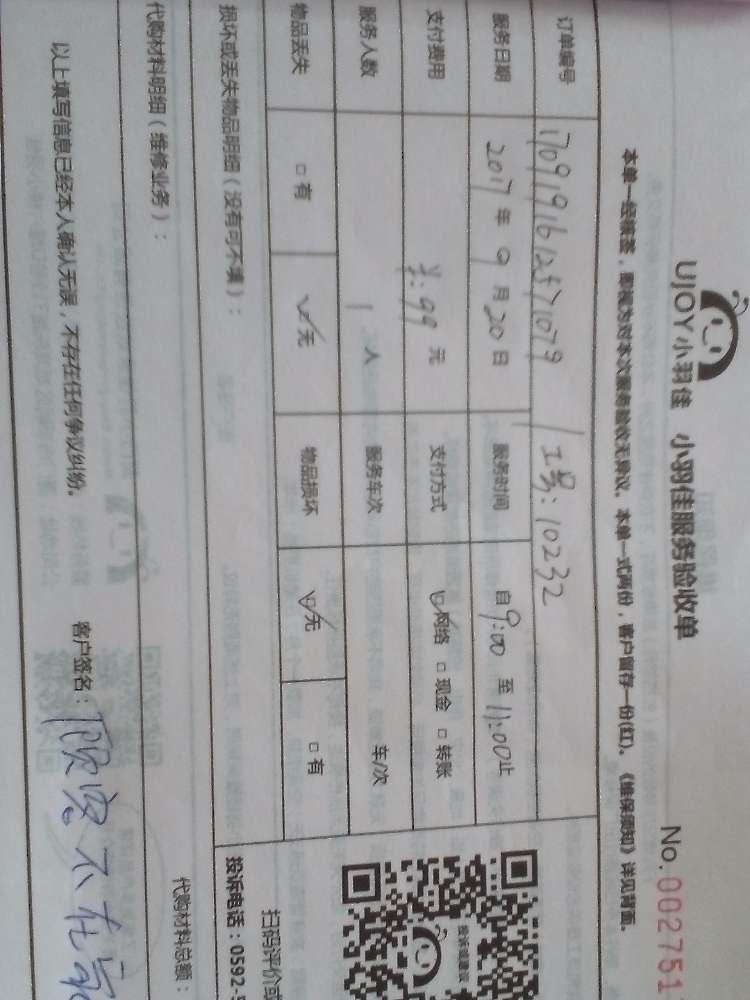 UJOY小羽佳 小羽佳服务验收单
No.002751
本单一经填签,即视为对本次服务验收无异议。本单一式两份,客户留存一份(红)。《维保须知》详见背面。
订单编号 1709191612571079 / 工号:10232
服务日期 2017 年 9 月 20 日 服务时间 自 9:00 至 11:00 止
支付费用 ¥:99 元 支付方式 ☑网络 □现金 □转账
服务人数 1 人 服务车次 车/次
物品丢失 □有 ☑无 物品损坏 ☑无 □有
损坏或丢失物品明细(没有可不填):
代购材料明细(维修业务): 代购材料总额:
以上填写信息已经本人确认无误,不存在任何争议纠纷。 客户签名:顾客不在家
投诉建议
扫码评价或
投诉电话:0592-5